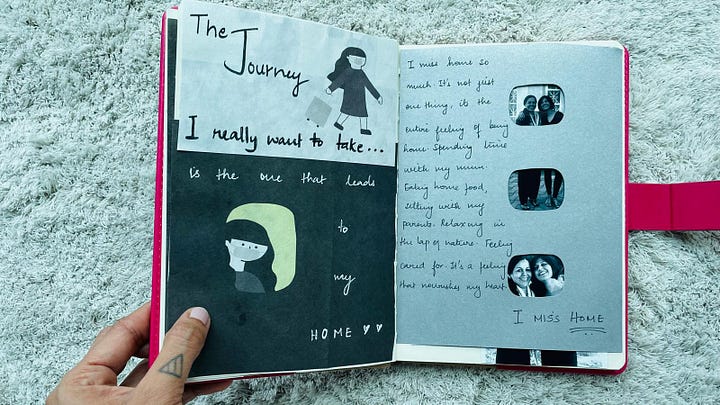 The
Journey
I really want to take...
is the one that leads
to
my
HOME
I miss home so
much. It's not just
one thing, its the
entire feeling of being
home. Spending time
with my mum.
Eating home food,
sitting with my
parents. Relaxing in
the lap of nature. Feeling
cared for. It's a feeling
that nourishes my heart
I MISS HOME